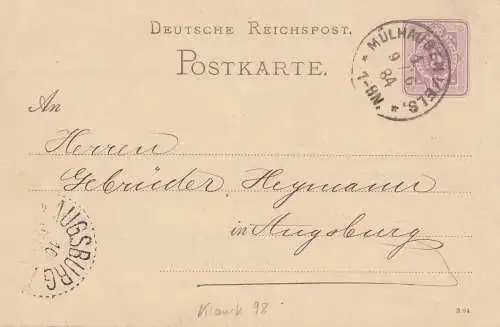 DEUTSCHE REICHSPOST.
POSTKARTE.
* MÜLHAUSEN i/ELS. *
9
84
7-8N.
An
Herren
Gebrüder Heymann
in Augsburg
AUGSBURG
Klanck 98
3 84